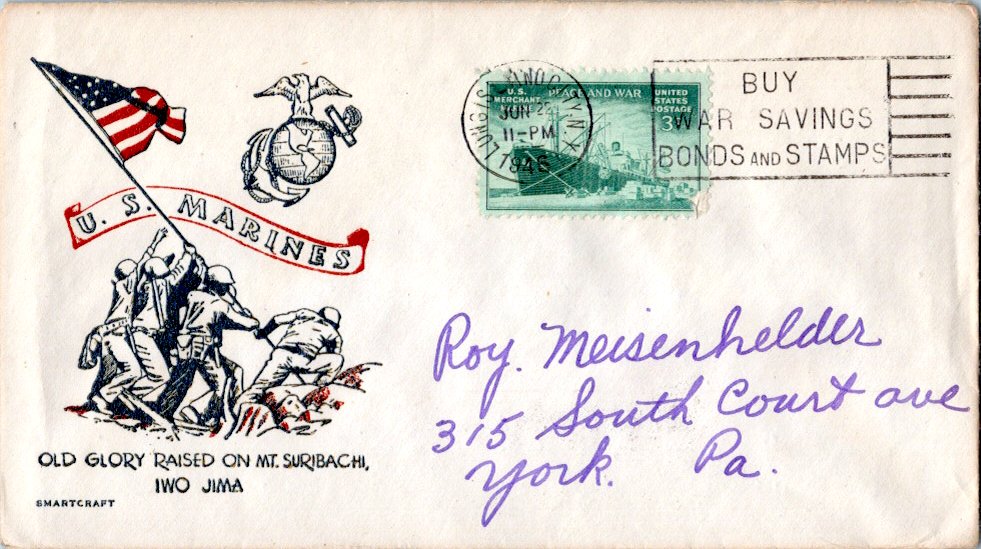 U. S. MARINES
OLD GLORY RAISED ON MT. SURIBACHI,
IWO JIMA
SMARTCRAFT
U.S. MERCHANT
PEACE AND WAR
UNITED STATES POSTAGE
3
CITY, N.Y.
JUN
11-PM
1946
BUY
WAR SAVINGS
BONDS AND STAMPS
Roy. Meisenhelder
315 South Court ave
York. Pa.